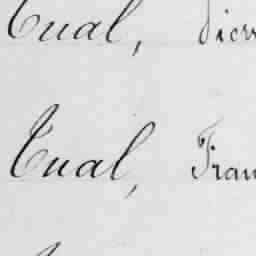 Tual, Pierr
Tual, Fran